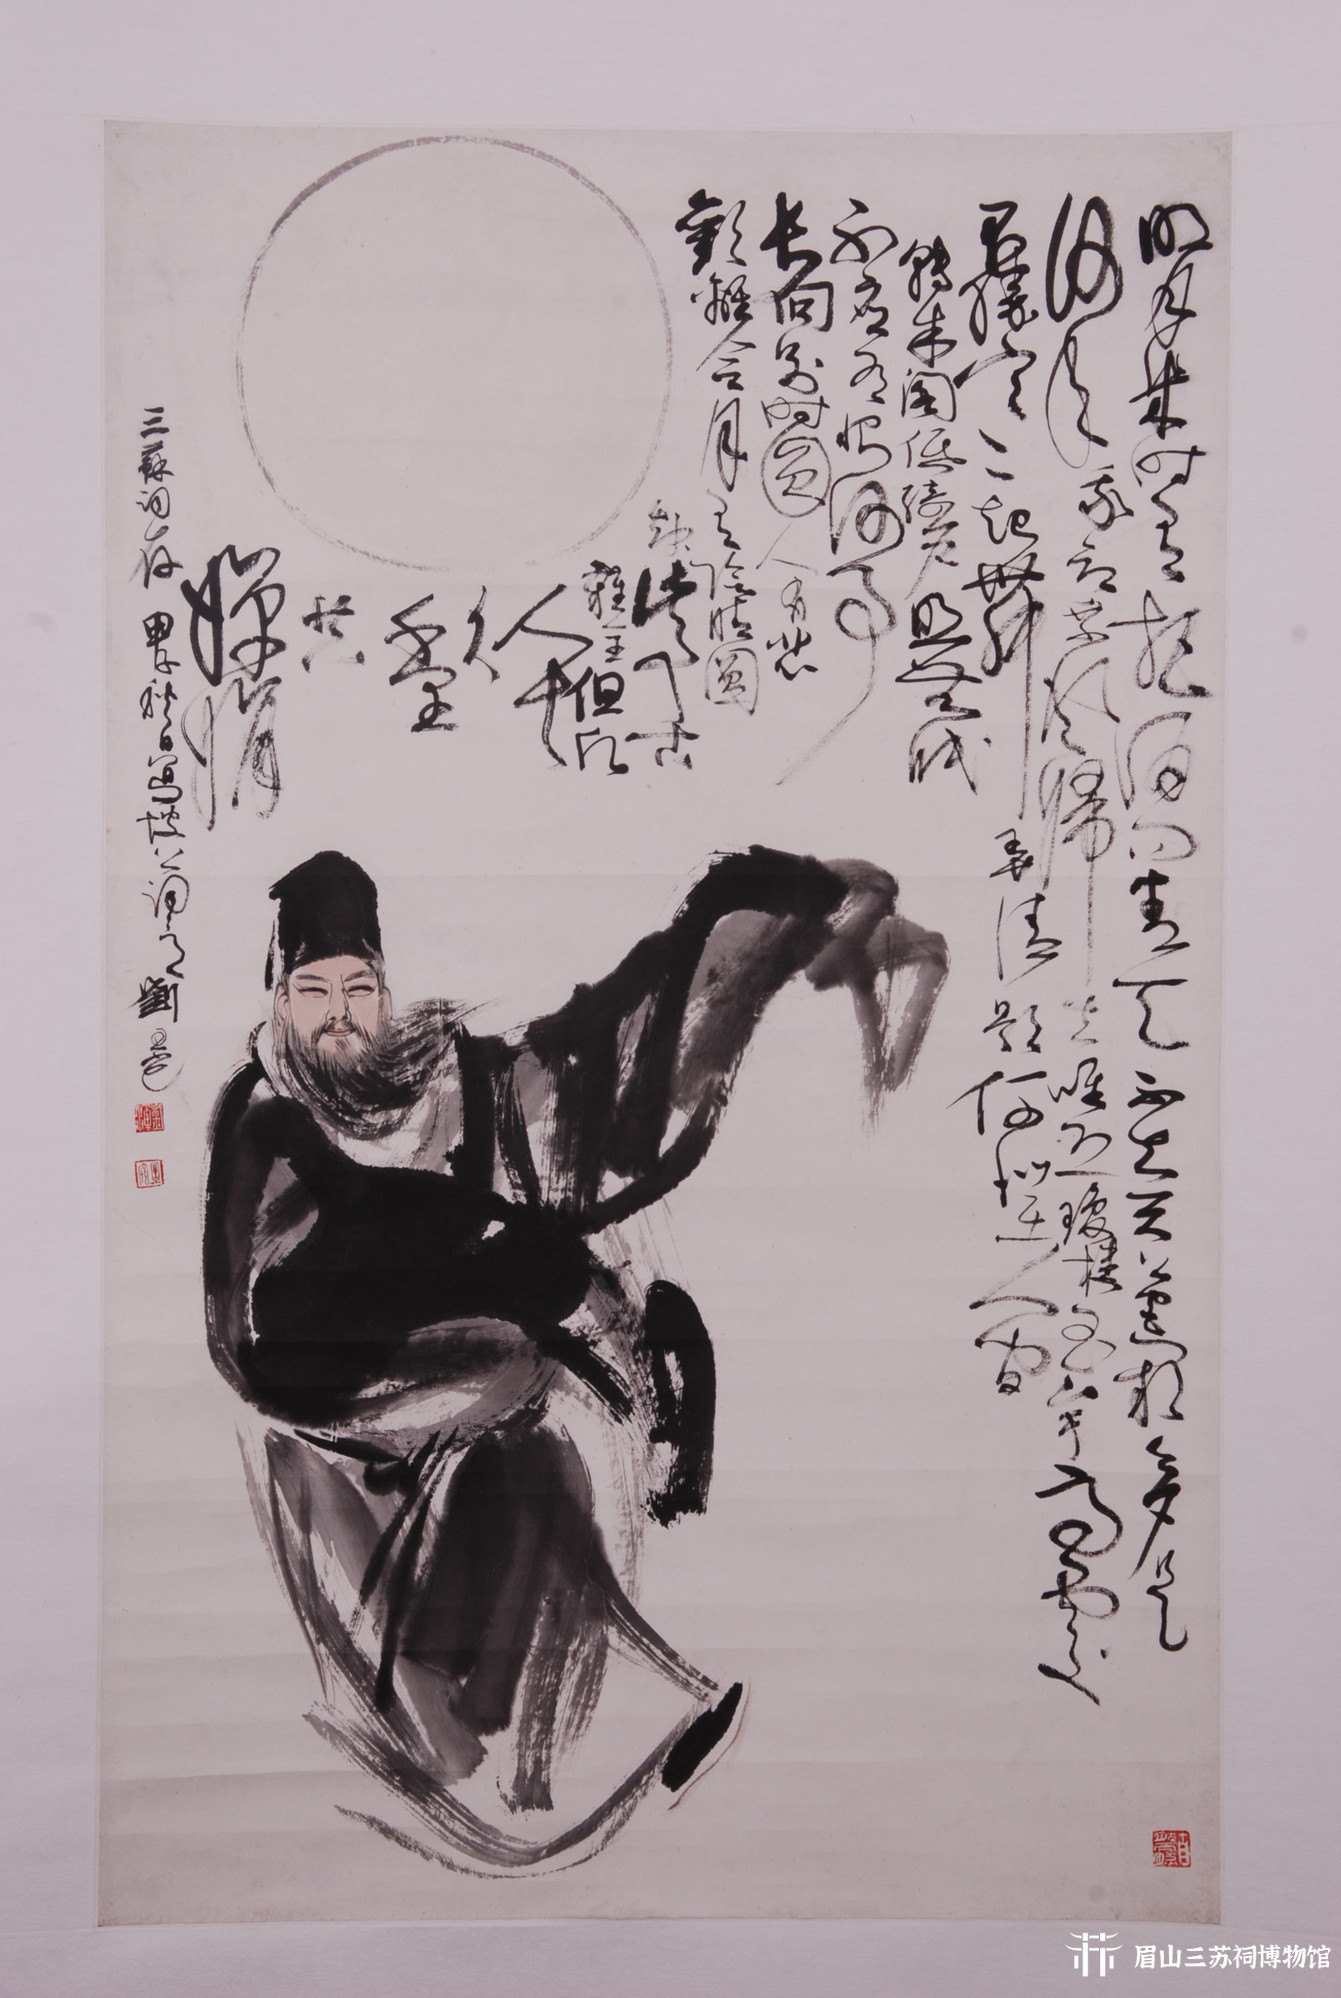 明月几时有把酒问青天不知天上宫阙今夕是
何年我欲乘风归去唯恐琼楼玉宇高处不
胜寒起舞弄清影何似在人间
转朱阁低绮户照无眠
不应有恨何事
长向别时圆人有悲
歡離合月有阴晴圆
缺此事古
難全但願
人长久
千里
共
嬋娟
三蘇祠存 甲子秋日写坡公词意 劉
眉山三苏祠博物馆